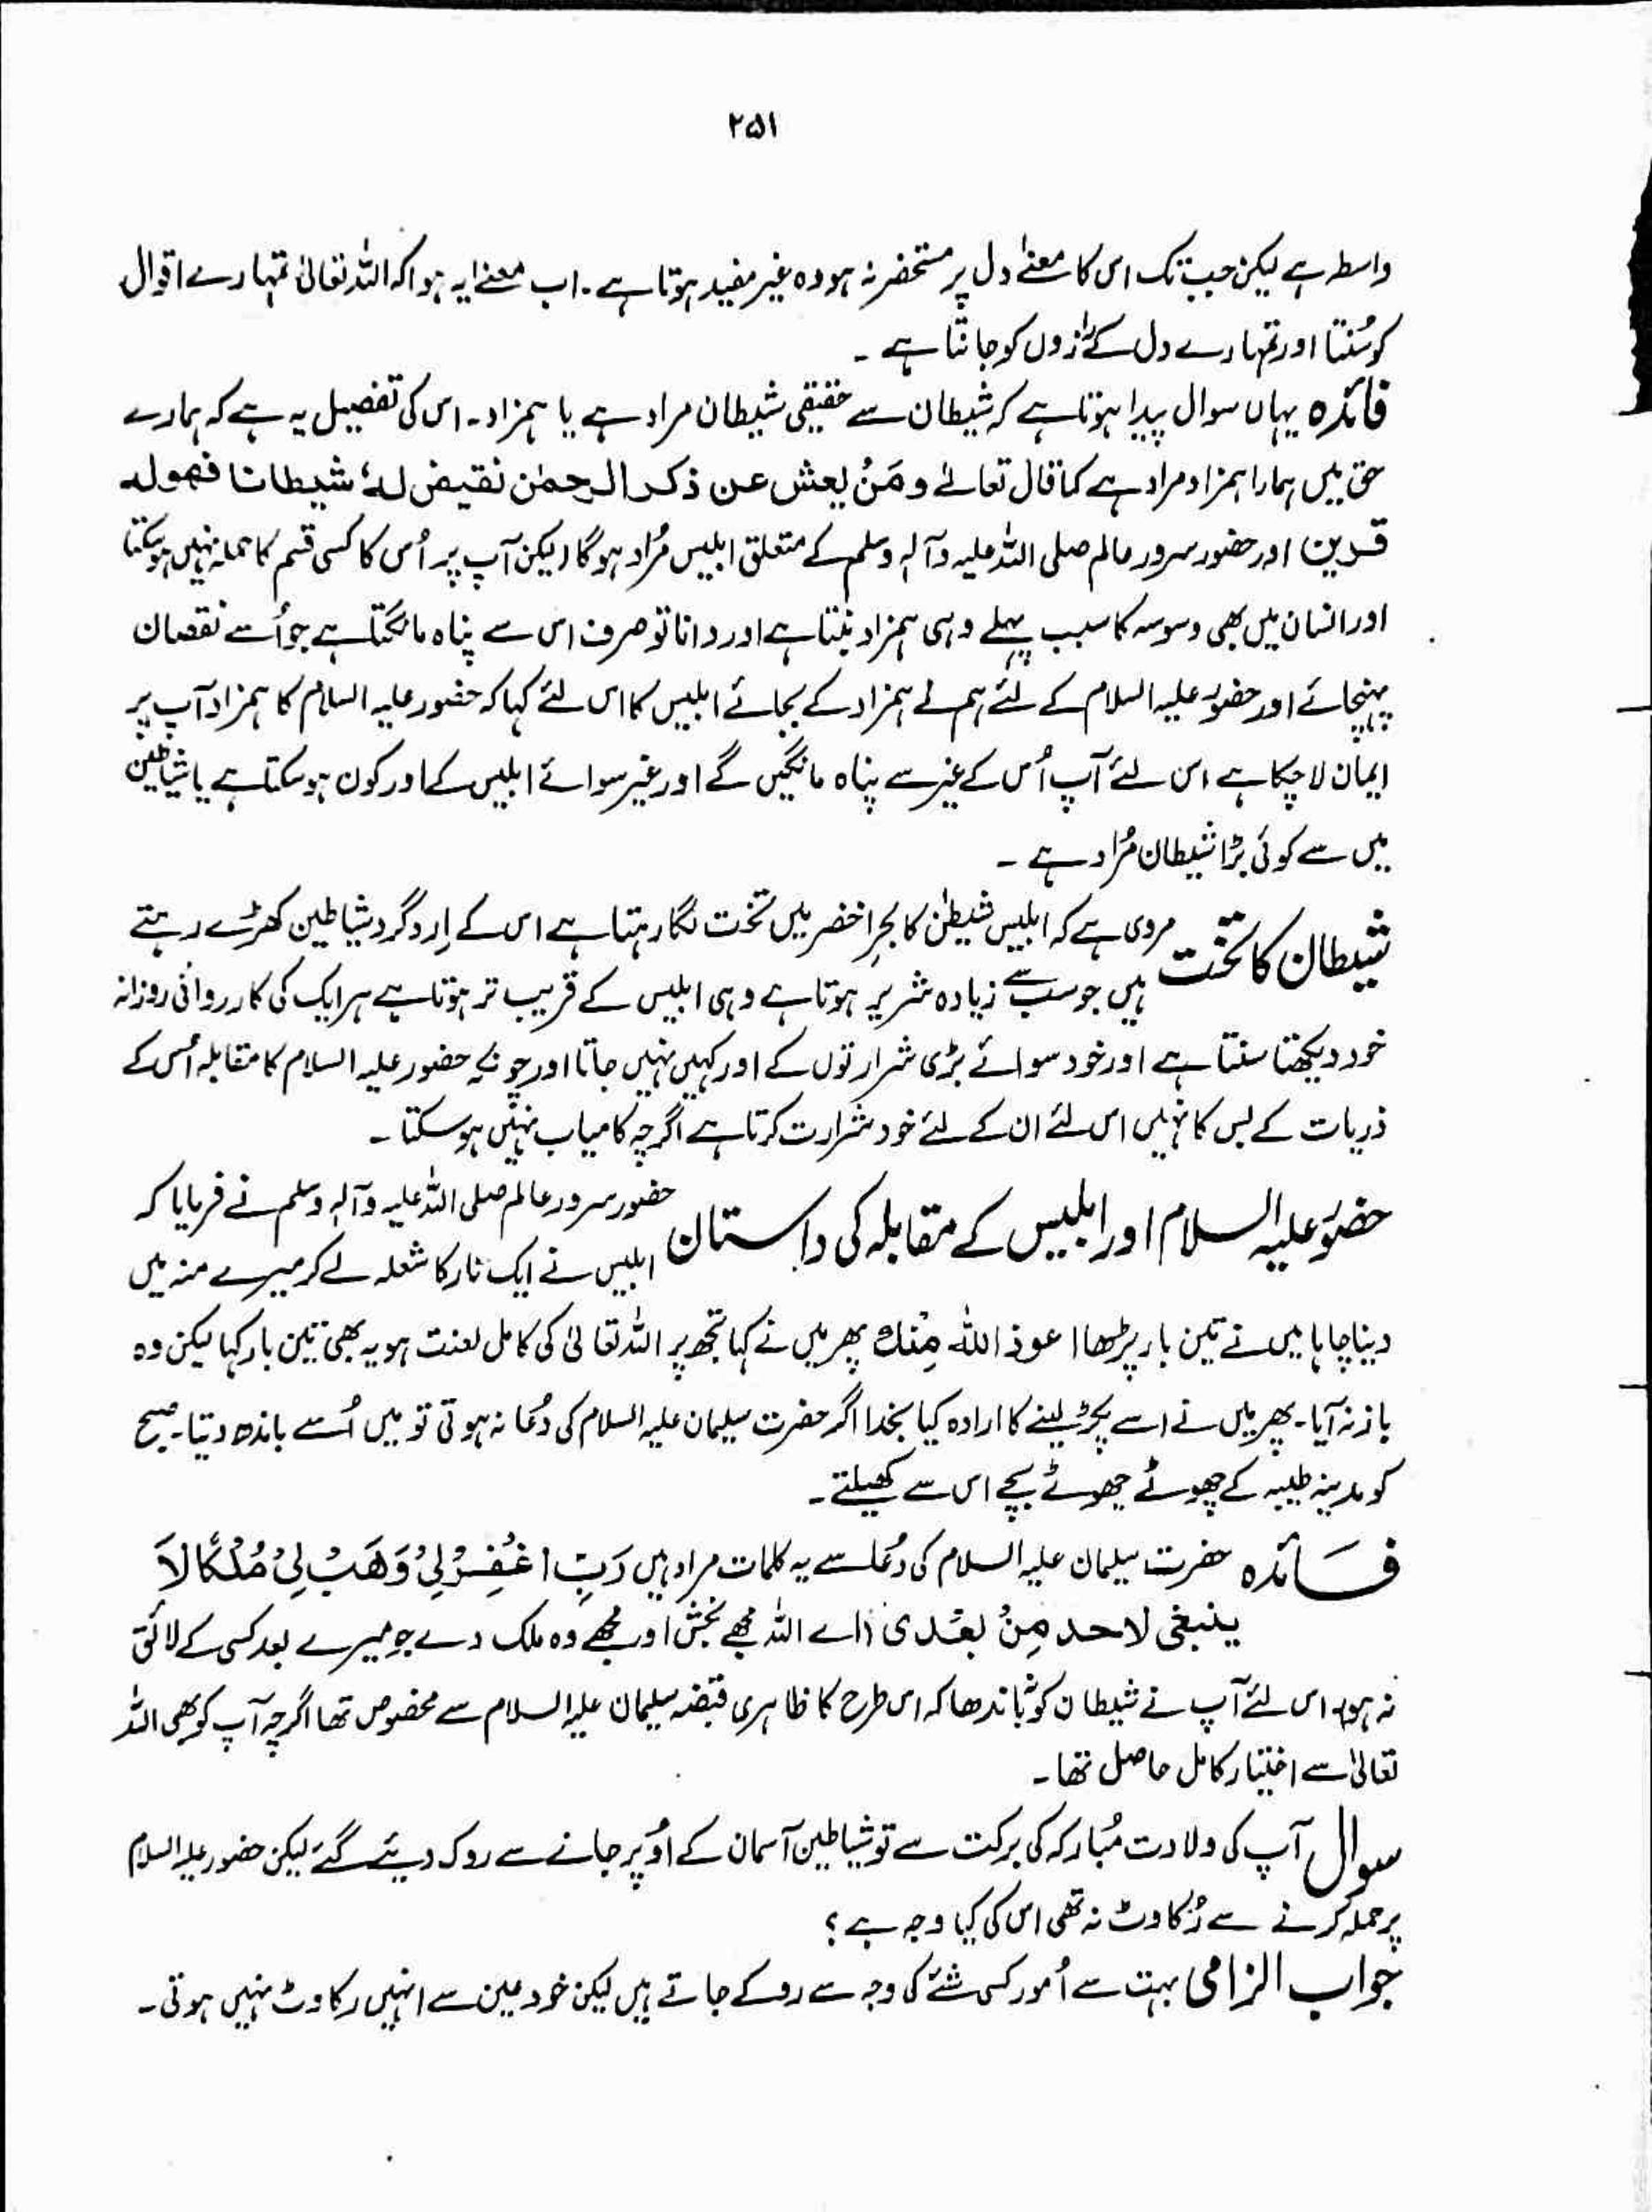 ۲۵۱
واسطہ ہے لیکن جب تک اس کا معنےٰ دل پر مستحضر نہ ہو وہ غیر مفید ہوتا ہے۔ اب معنےٰ یہ ہوا کہ اللہ تعالیٰ تمہارے اقوال
کو سُنتا اور تمہارے دل کے رازوں کو جانتا ہے ۔
فائدہ یہاں سوال پیدا ہوتا ہے کہ شیطان سے حقیقی شیطان مراد ہے یا ہمزاد۔ اس کی تفصیل یہ ہے کہ ہمارے
حق میں ہمارا ہمزاد مراد ہے کما قال تعالےٰ ومَنْ یعش عن ذکر الرحمٰن نقیض لہٗ شیطانا فھولہ
قرین اور حضور سرور عالم صلی اللہ علیہ وآلہٖ وسلم کے متعلق ابلیس مُراد ہوگا (لیکن آپ پر اُس کا کسی قسم کا حملہ نہیں ہوسکتا
اور انسان میں بھی وسوسہ کا سبب پہلے وہی ہمزاد بنتا ہے اور دانا تو صرف اس سے پناہ مانگتا ہے جو اُسے نقصان
پہنچائے اور حضورؐ علیہ السلام کے لئے ہم نے ہمزاد کے بجائے ابلیس کا اس لئے کہا کہ حضور علیہ السلام کا ہمزاد آپ پر
ایمان لا چکا ہے اس لئے آپ اُس کے غیر سے پناہ مانگیں گے اور غیر سوائے ابلیس کے اور کون ہوسکتا ہے یا شیاطین
میں سے کوئی بڑا شیطان مُراد ہے ۔
شیطان کا تخت مروی ہے کہ ابلیس شیطٰن کا بحرِ اخضر میں تخت لگا رہتا ہے اس کے اِرد گرد شیاطین کھڑے رہتے
ہیں جو سب سے زیادہ شریر ہوتا ہے وہی ابلیس کے قریب تر ہوتا ہے ہر ایک کی کارروائی روزانہ
خود دیکھتا سنتا ہے اور خود سوائے بڑی شرارتوں کے اور کہیں نہیں جاتا اور چونکہ حضور علیہ السلام کا مقابلہ اُس کے
ذریات کے بس کا نہیں اس لئے ان کے لئے خود شرارت کرتا ہے اگرچہ کامیاب نہیں ہوسکتا ۔
حضورؐ علیہ السلام اور ابلیس کے مقابلہ کی داستان حضور سرور عالم صلی اللہ علیہ وآلہٖ وسلم نے فرمایا کہ
ابلیس نے ایک نار کا شعلہ لے کر میرے منہ میں
دینا چاہا میں نے تین بار پڑھا اعوذ اللہ مِنْك پھر میں نے کہا تجھ پر اللہ تعالیٰ کی کامل لعنت ہو یہ بھی تین بار کہا لیکن وہ
باز نہ آیا۔ پھر میں نے اسے پکڑ لینے کا ارادہ کیا بخدا اگر حضرت سلیمان علیہ السلام کی دُعا نہ ہوتی تو میں اُسے باندھ دیتا۔ صبح
کو مدینہ طیبہ کے چھوٹے چھوٹے بچے اس سے کھیلتے۔
فائدہ حضرت سلیمان علیہ السلام کی دُعا سے یہ کلمات مراد ہیں رَبِّ اغْفِرْلِیْ وَھَبْ لِیْ مُلْکًا لَا
ینبغی لاحد مِنْ بعْدی (اے اللہ مجھے بخش اور مجھے وہ ملک دے جو میرے بعد کسی کے لائق
نہ ہو) اس لئے آپ نے شیطان کو نہ باندھا کہ اس طرح کا ظاہری قبضہ سلیمان علیہ السلام سے مخصوص تھا اگرچہ آپ کو بھی اللہ
تعالیٰ سے اختیار کامل حاصل تھا۔
سوال آپ کی ولادت مُبارکہ کی برکت سے تو شیاطین آسمان کے اُوپر جانے سے روک دیئے گئے لیکن حضور علیہ السلام
پر حملہ کرنے سے رُکاوٹ نہ تھی اس کی کیا وجہ ہے؟
جواب الزامی بہت سے اُمور کسی شئے کی وجہ سے روکے جاتے ہیں لیکن خود عین سے انہیں رکاوٹ نہیں ہوتی۔